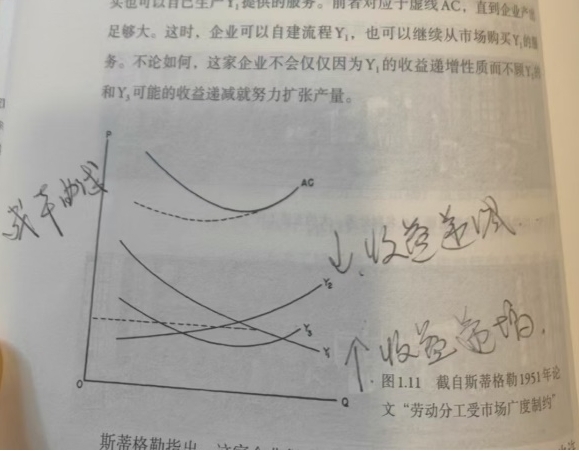 买也可以自己生产Y₁提供的服务。前者对应于虚线AC，直到企业产
足够大。这时，企业可以自建流程Y₁，也可以继续从市场购买Y₁的服
务。不论如何，这家企业不会仅仅因为Y₁的收益递增性质而不顾Y₂
和Y₃可能的收益递减就努力扩张产量。
P
AC
成本曲线
↓收益递减.
Y₂
Y₃
Y₁
↑收益递增.
O
Q
图1.11 截自斯蒂格勒1951年论
文“劳动分工受市场广度制约”
斯蒂格勒指出，这家企业